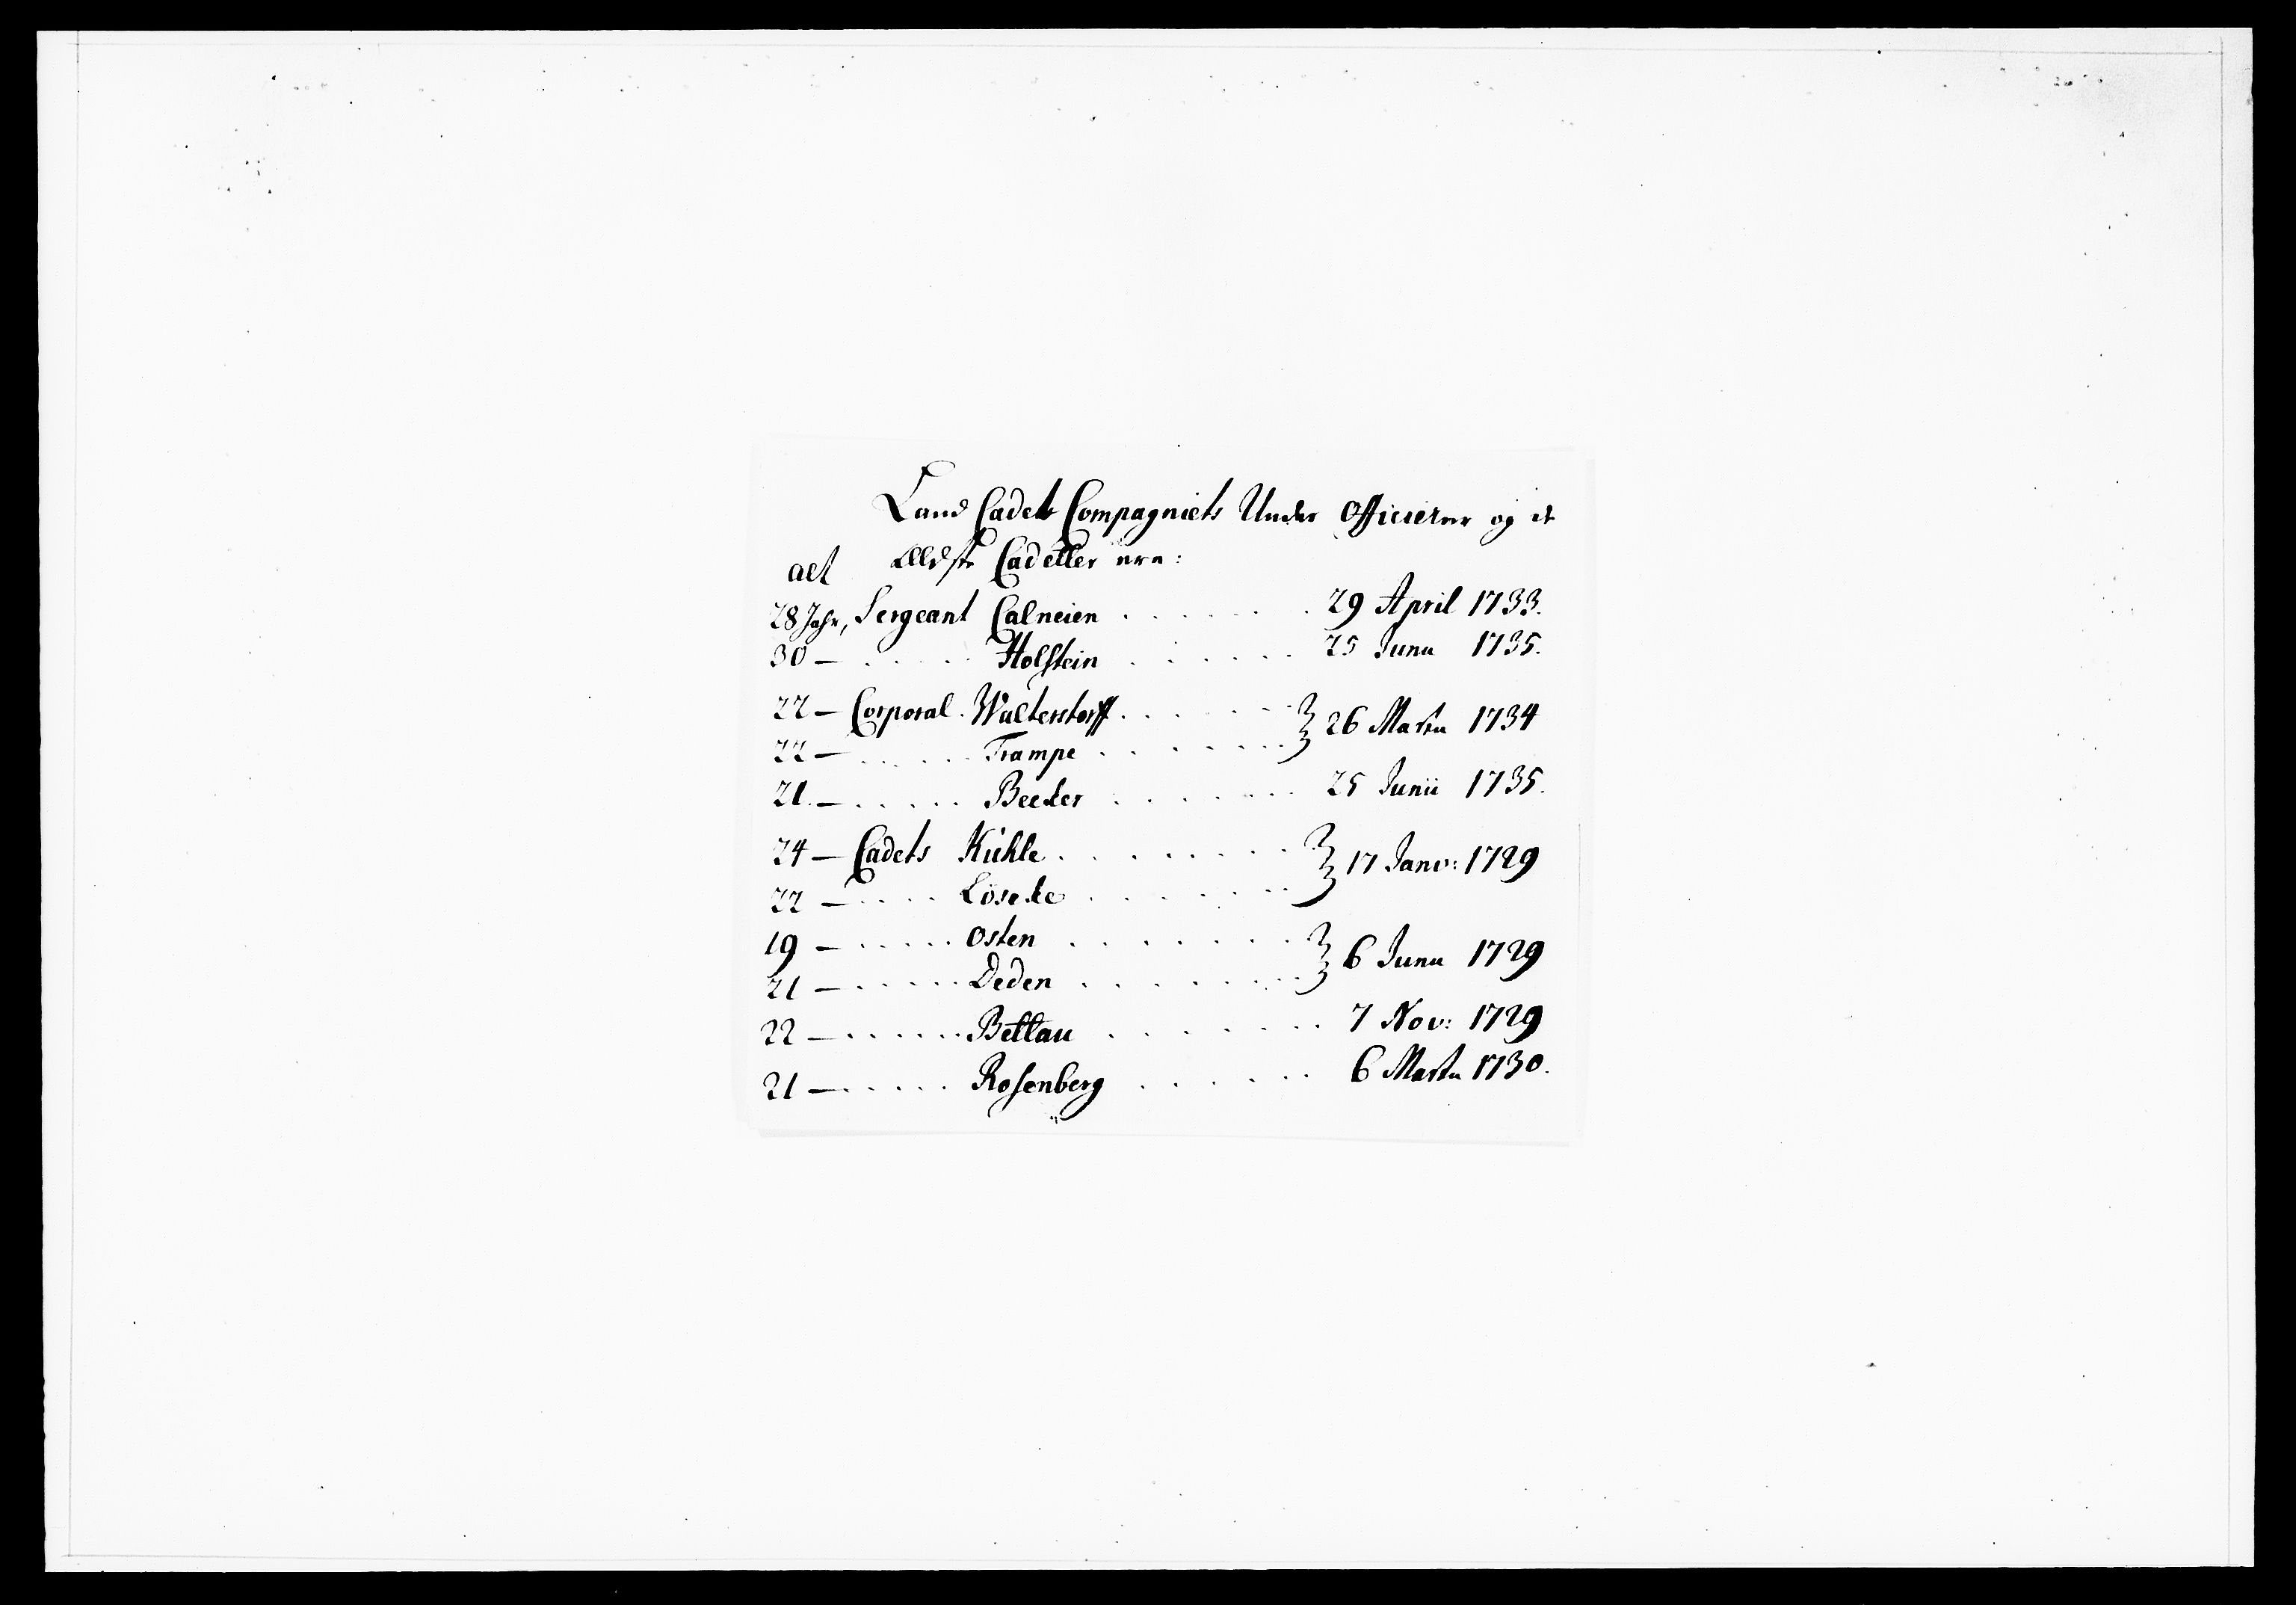 Land Cadet Compagniets Under Officierer og de
alt Eldste Cadetter ere:
28 Jahr, Sergeant Calneien . . . . . . 29 April 1733.
30 — . . . . . Holstein . . . . . . 25 Junii 1735.
22 — Corporal . Walterstorff . . . . . . } 26 Martii 1734
22 — . . . . . . Trampe . . . . . . }
21. — . . . . . Becker . . . . . . 25 Junii 1735.
24 — Cadets Kühle . . . . . . . } 17 Janv: 1729
22 — . . . . Lösecke . . . . . . }
19 — . . . . . Osten . . . . . . . } 6 Junii 1729
21 — . . . . . Deden . . . . . . }
22 — . . . . . . Bettau . . . . . . 7 Nov: 1729
21 — . . . . . Rosenberg . . . . . . 6 Martii 1730.